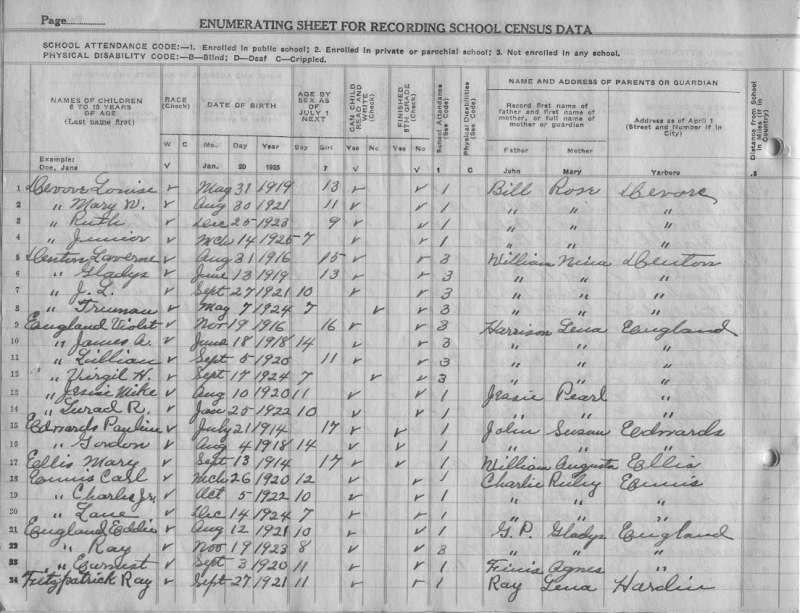 Page
ENUMERATING SHEET FOR RECORDING SCHOOL CENSUS DATA
SCHOOL ATTENDANCE CODE:—1. Enrolled in public school; 2. Enrolled in private or parochial school; 3. Not enrolled in any school.
PHYSICAL DISABILITY CODE:—B—Blind; D—Deaf C—Crippled.
NAMES OF CHILDREN 6 TO 18 YEARS OF AGE (Last name first) RACE (Check) DATE OF BIRTH AGE BY SEX AS OF JULY 1 NEXT CAN CHILD READ AND WRITE (Check) FINISHED 8TH GRADE (Check) School Attendance (See Code) Physical Disabilities (See Code) NAME AND ADDRESS OF PARENTS OR GUARDIAN Distance from School in Miles (if in Country)
Record first name of father and first name of mother, or full name of mother or guardian Address as of April 1 (Street and Number if in City)
W C Mo. Day Year Boy Girl Yes No Yes No Father Mother
Example: Doe, Jane V Jan. 20 1925 7 V V 1 C John Mary Yarboro .3
1 Devore Louise v May 31 1919 13 v v 1 Bill Rose Devore
2 " Mary W. v Aug 30 1921 11 v v 1 " " "
3 " Ruth v Dec 25 1923 9 v v 1 " " "
4 " Junior v Mch 14 1925 7 v v 1 " " "
5 Denton Laverne v Aug 31 1916 15 v v 3 William Nina Denton
6 " Gladys v June 13 1919 13 v v 3 " " "
7 " J. L. v Sept 27 1921 10 v v 3 " " "
8 " Truman v May 7 1924 7 v v 3 " " "
9 England Violet v Nov 19 1916 16 v v 3 Harrison Lena England
10 " James A. v June 18 1918 14 v v 3 " " "
11 " Lillian v Sept 5 1920 11 v v 3 " " "
12 " Virgil H. v Sept 17 1924 7 v v 3 " " "
13 " Jessie Mike v Aug 10 1920 11 v v 1 Jessie Pearl "
14 " R. v Jan 25 1922 10 v v 1 " " "
15 Edmards Pauline v July 21 1914 17 v v 1 John Susan Edmards
16 " Gordon v Aug 4 1918 14 v v 1 " " "
17 Ellis Mary v Sept 13 1914 17 v v 1 William Augusta Ellis
18 Ennis Carl v Mch 26 1920 12 v v 1 Charlie Ruby Ennis
19 " Charlie Jr. v Oct 5 1922 10 v v 1 " " "
20 " Lane v Dec 14 1924 7 v v 1 " " "
21 England Eddie v Aug 12 1921 10 v v 1 G. P. Gladys England
22 " Ray v Nov 19 1923 8 v v 3 " " "
23 " Earnest v Sept 3 1920 11 v v 1 Finis Agnes "
24 Fitzpatrick Ray v Sept 27 1921 11 v v 1 Ray Lena Hardin